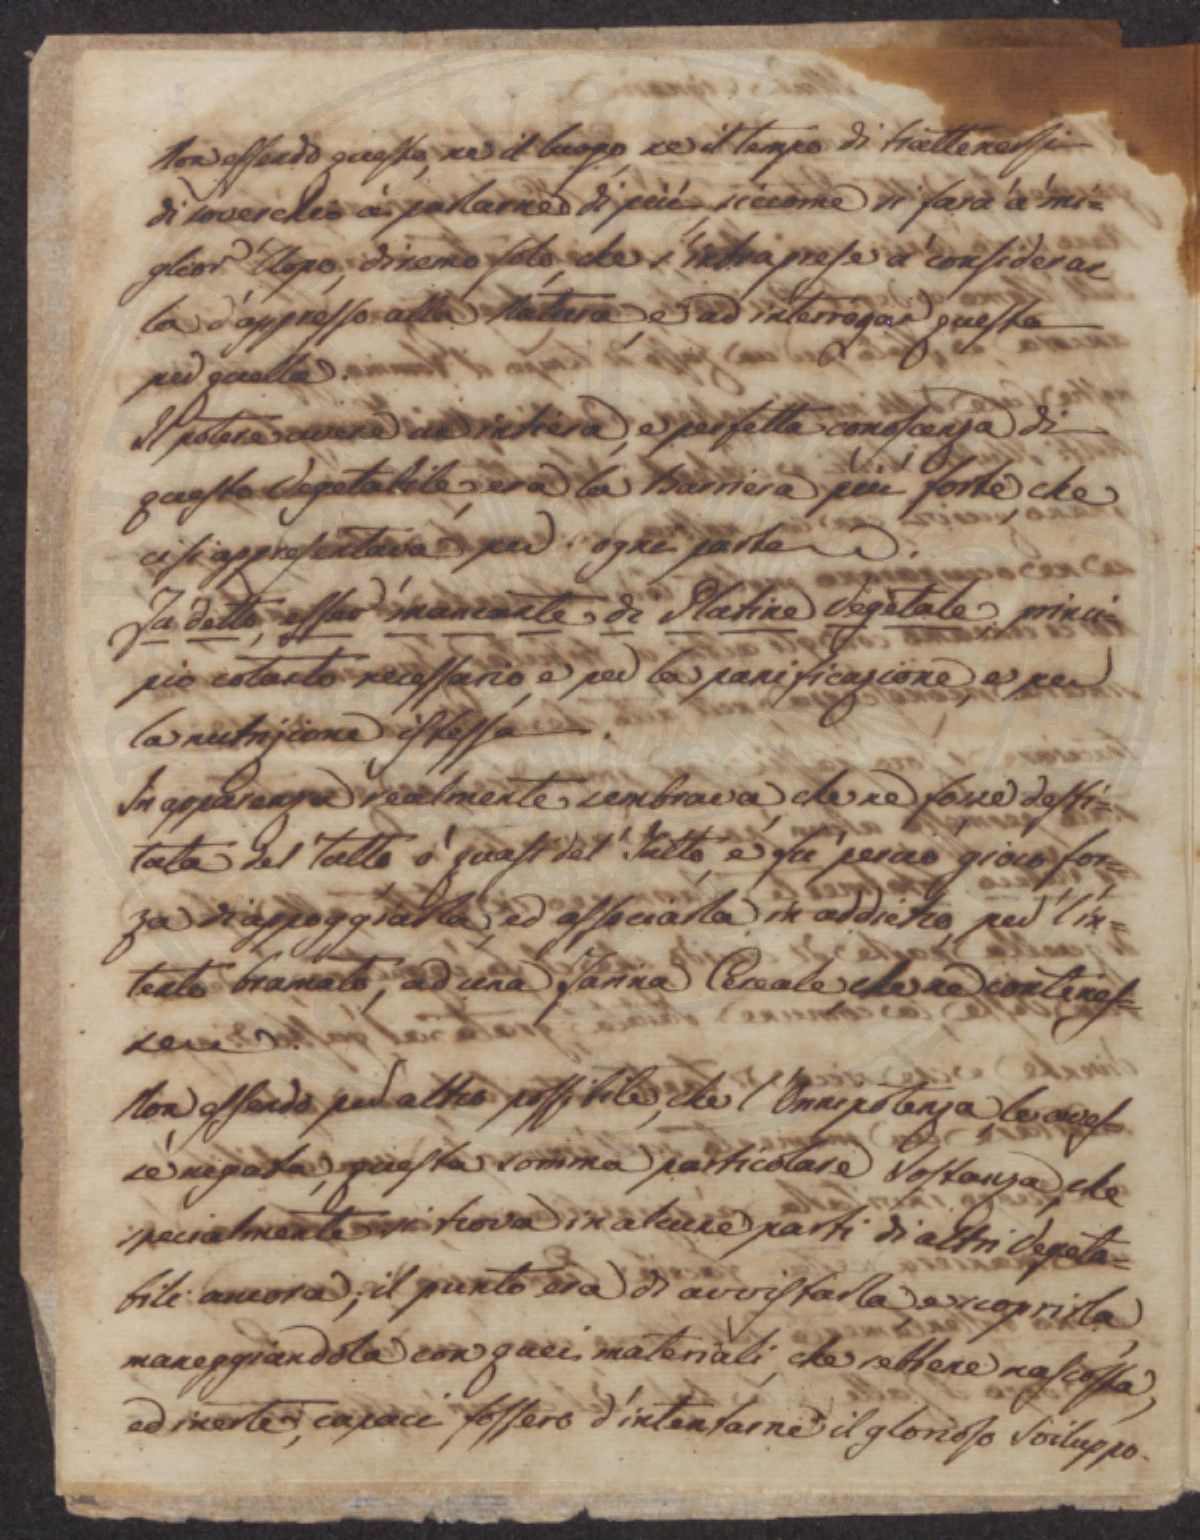 Non essendo questo, ne il luogo, ne il tempo di trattenersi
di soverchio à parlarne di più, siccome si farà à mi=
glior Uopo, diremo solo, che s'intraprese à considerar
la d'appresso alla Natura, e ad interrogar questa
per quella.
Il potere avere un intiera, e perfetta conoscenza di
questo Vegetabile, era la Barriera più forte, che
ci si appresentava per ogni parte.
Fù detto, esser mancante di Glutine Vegetale, princi=
pio cotanto necessario, e per la panificazione, e per
la nutrizione istessa.
In apparenza realmente sembrava, che ne fosse desti=
tuta del tutto ò quasi del Tutto, e fù perciò gioco for=
za di appoggiarla, ed associarla in addietro, per l'in=
tento bramato, ad una Farina Cereale che ne contenes=
se.
Non essendo per altro possibile, che l'Onnipotenza le aves=
se negata, questa somma particolare Sostanza, che
specialmente si trova in alcune parti di altri Vegeta=
bili ancora; il punto era di avvistarla, e scoprirla,
maneggiandola con quei materiali, che sebbene nascosta,
ed inerte, capaci fossero d'intentarne il glorioso Sviluppo.